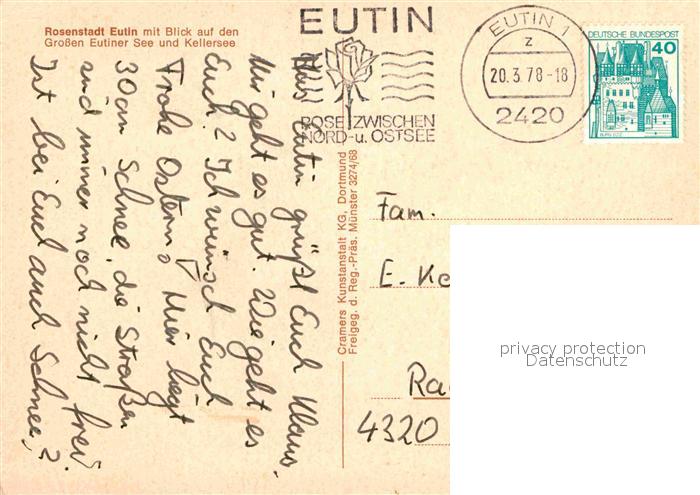 Rosenstadt Eutin mit Blick auf den
Großen Eutiner See und Kellersee
EUTIN
ROSE ZWISCHEN
NORD- u. OSTSEE
EUTIN 1
z
20.3.78-18
2420
DEUTSCHE BUNDESPOST
40
Aus Eutin grüßt Euch Klaus.
Mir geht es gut. Wie geht es
Euch? Ich wünsch Euch
Frohe Ostern! Hier liegt
30cm Schnee, die Straßen
sind immer noch nicht frei
Ist bei Euch auch Schnee?
Cramers Kunstanstalt KG, Dortmund
Freigeg. d. Reg.-Präs. Münster 3274/68
Fam.
E. Ke
Ra
4320
privacy protection
Datenschutz